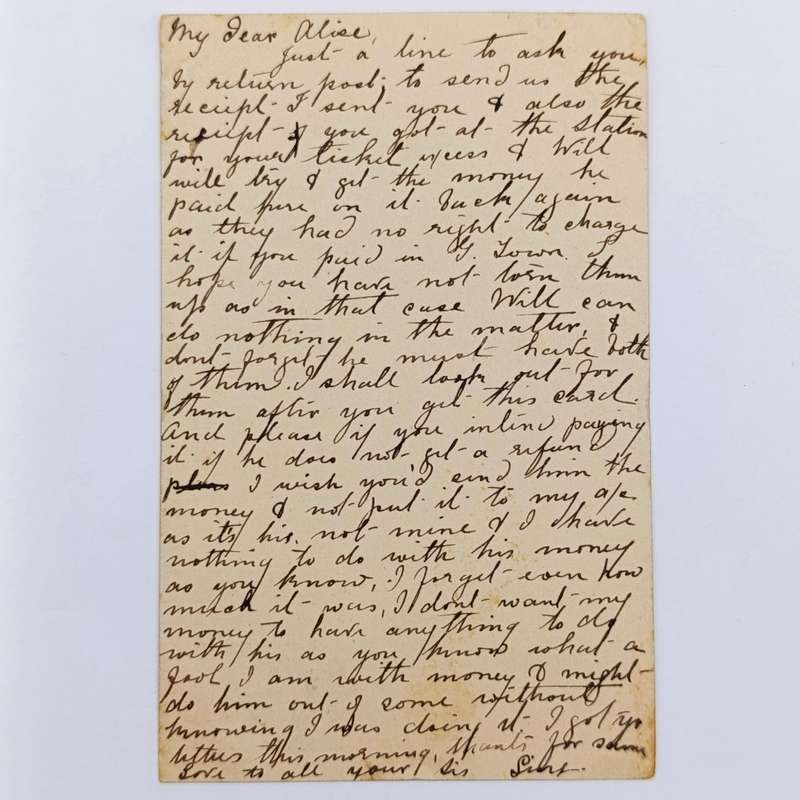 My Dear Alise,
Just a line to ask you,
by return post, to send us the
reciept I sent you & also the
reciept if you got at the station
for your ticket excess & Will
will try & get the money he
paid here on it back again
as they had no right to charge
it if you paid in G. Town. I
hope you have not torn them
up as in that case Will can
do nothing in the matter, &
dont forget he must have both
of them. I shall look out for
them after you get this card.
And please if you intend paying
it if he does not get a refund
I wish you'd send him the
money & not put it to my a/c
as it's his, not mine & I have
nothing to do with his money
as you know, I forget even how
much it was, I dont want my
money to have anything to do
with his as you know what a
fool I am with money & might
do him out of some without
knowing I was doing it. I got yr
letters this morning, thanks for same
Love to all your sis